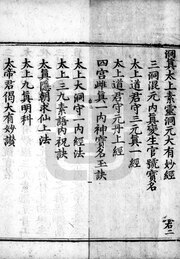 洞真太上素靈洞元大有妙經
三洞混元內真變生官號寶名
太上道君守三元真一經
太上道君守元丹上經
四宮雌真一內神寶名玉訣
太上大洞守一內經法
太上三九素語內祝訣
太真隱朝求仙上法
太上九真明科
太帝君偈大有妙讚